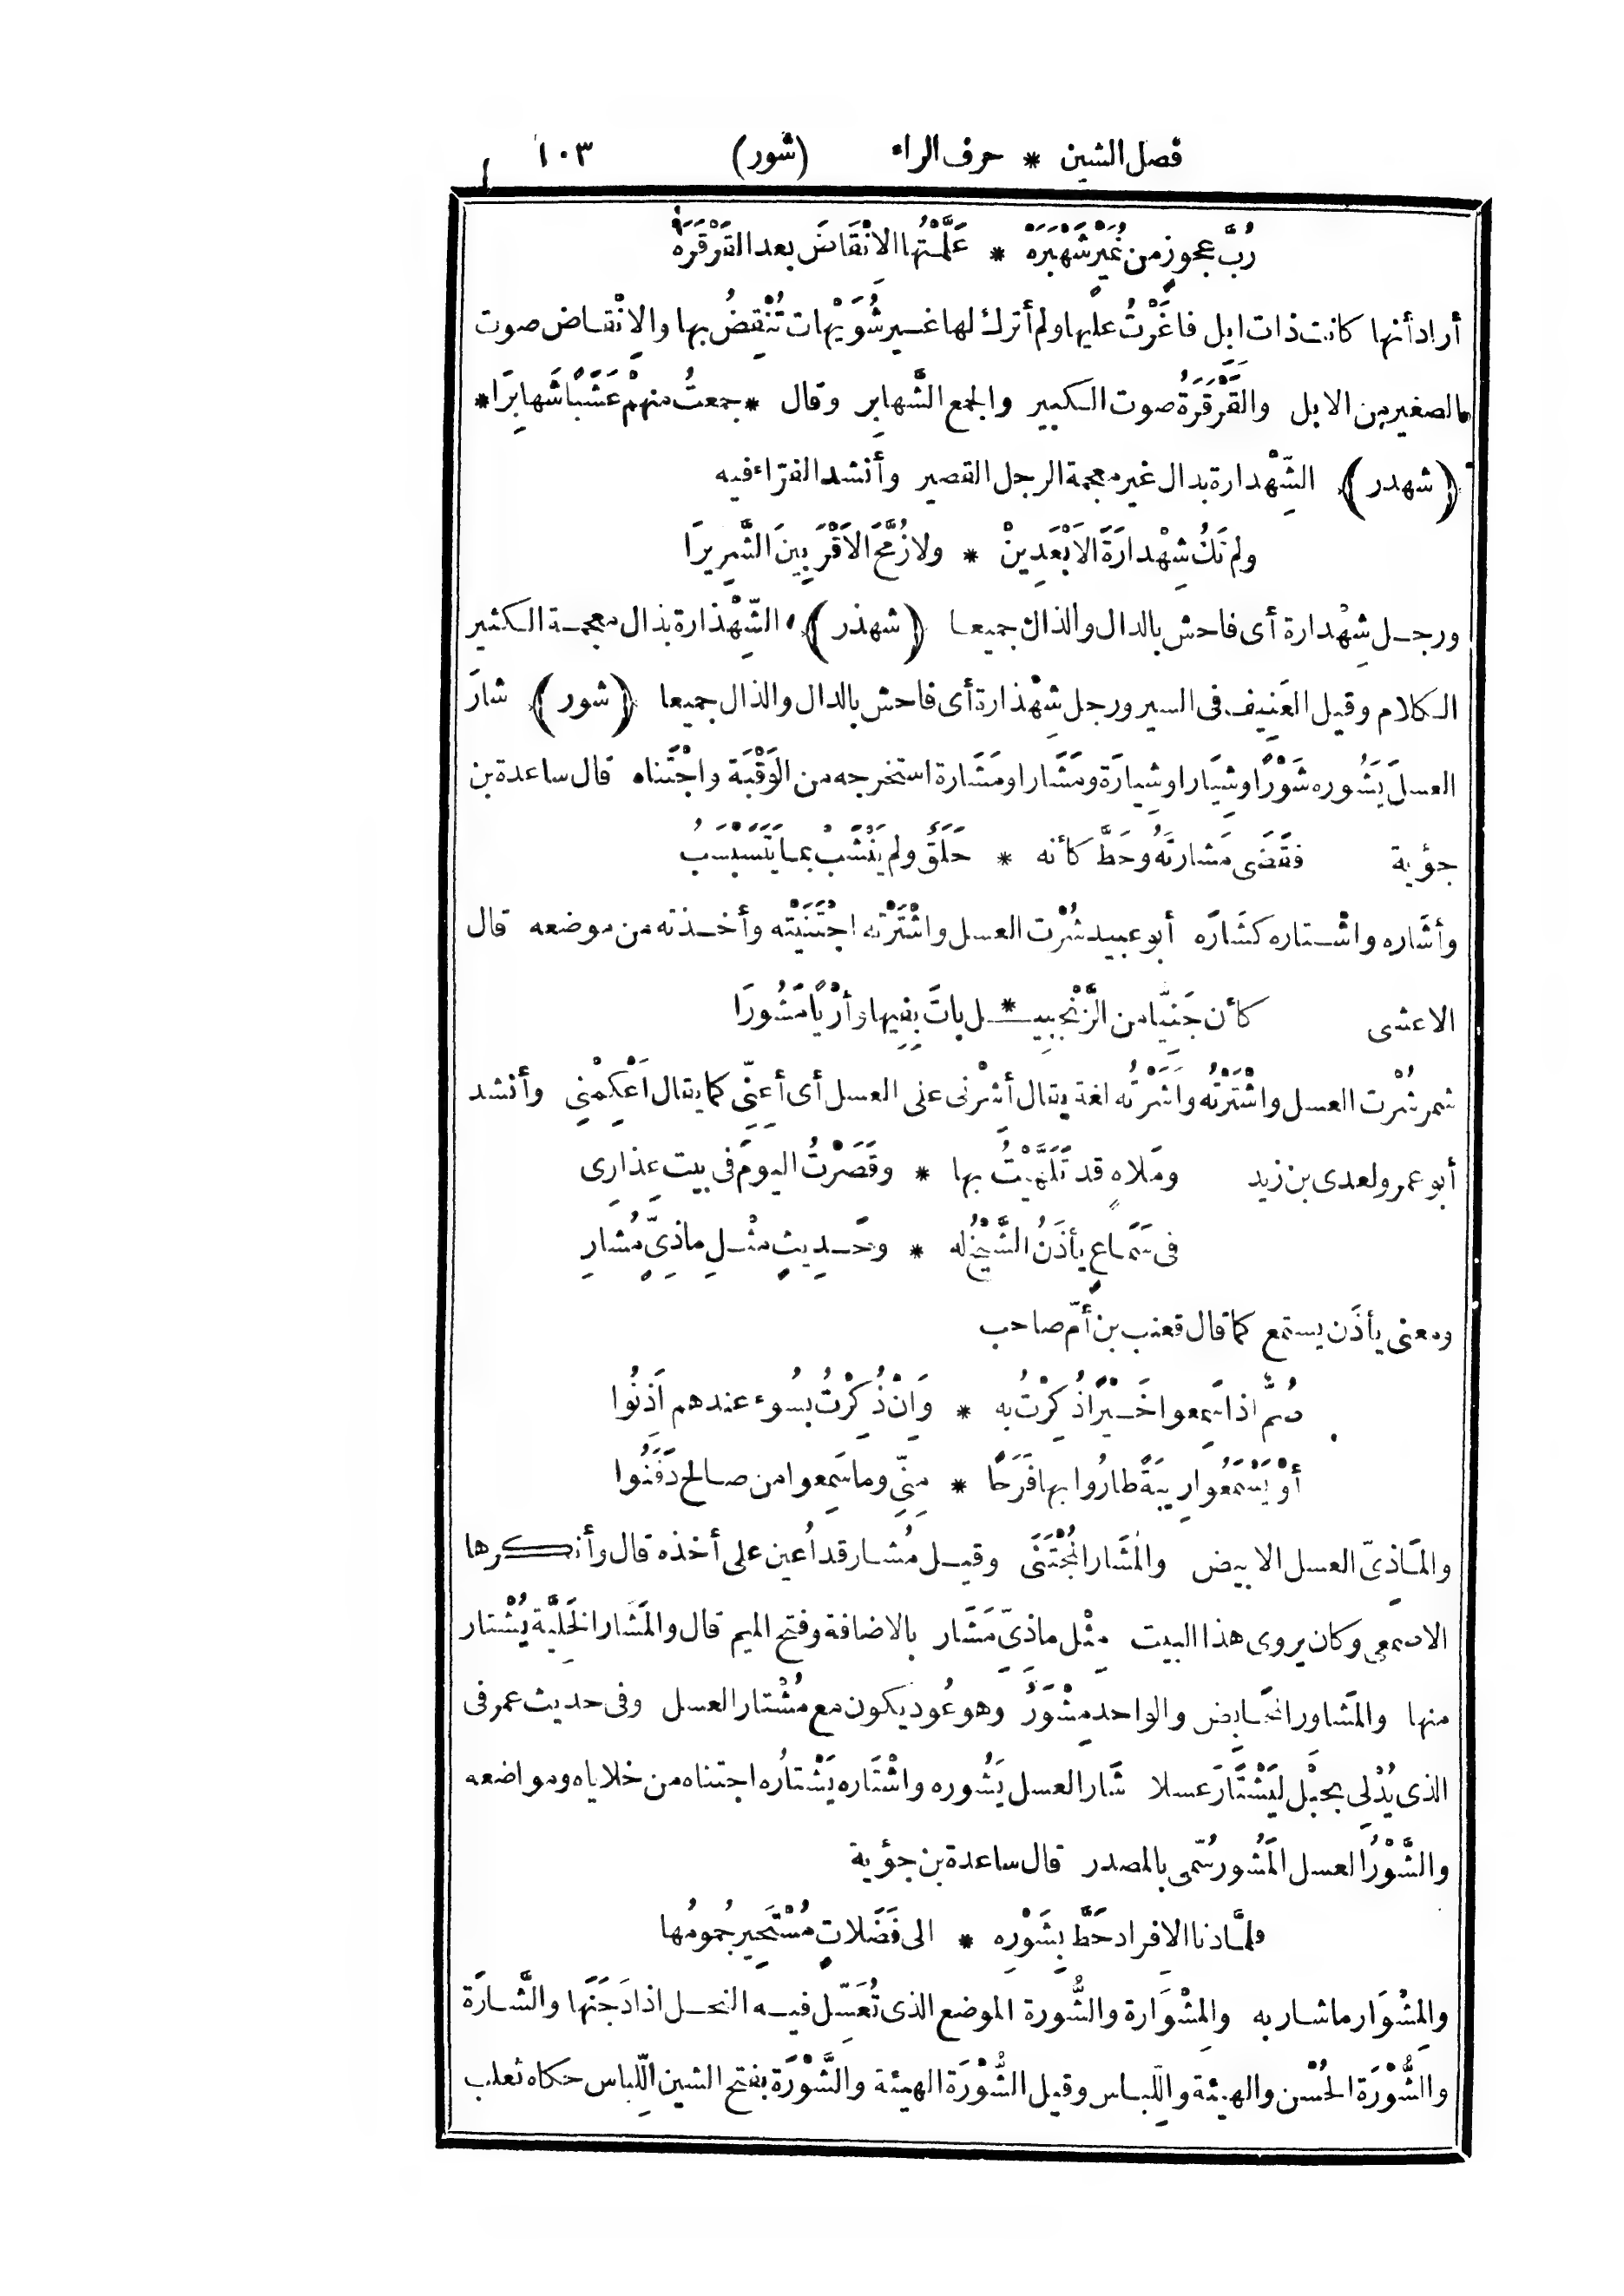 فصل الشين * حرف الراء (شور) ١٠٣
رُبَّ عجوزٍ من نُمَيْرٍ شَهْبَرَه * عَلَّمْتُها الانْقَاضَ بعد القَرْقَرَه
أراد أنها كانت ذات ابل فاغَرْتُ عليها ولم أترك لها غير شُوَيْهات تُنْقِضُ بها والاِنْقاض صوت
الصغير من الابل والقَرْقَرَةُ صوت الكبير والجمع الشَّهابِر وقال * جمعتُ منهمْ عَشَبًا شَهابِرَا *
(شهدر) الشِّهْدارة بدال غير معجمة الرجل القصير وأنشد الفرّاء فيه
ولم تَكُ شِهْدارَةَ الاَبْعَدِينْ * ولا زُمَّحَ الاَقْرَبِينَ الشَّرِيرَا
ورجل شِهْدارة أى فاحش بالدال والذال جميعا (شهذر) الشِّهْذارة بذال معجمة الكثير
الكلام وقيل العَنِيف فى السير ورجل شِهْذارة أى فاحش بالدال والذال جميعا (شور) شارَ
العسلَ يَشُوره شَوْرًا وشِيَارا وشِيارَة ومَشَارا ومَشَارة استخرجه من الوَقْبَة واجْتَناه قال ساعدة بن
جؤية فقَضَى مَشارتَهُ وحَطَّ كأنه * حَلَقٌ ولم يَنْشَبْ بما يَتَسَبْسَبُ
وأشَاره واشْتاره كشَارَه أبو عبيد شُرْت العسل واشْتَرْته اجْتَنَيْته وأخذته من موضعه قال
الاعشى كأن جَنِيًّا من الزَّنْجبِيـ * ـل باتَ بِفِيها وأرْيًا مَشُورَا
شمر شُرْت العسل واشْتَرْتُه واَشَرْتُه لغة يقال أشِرْنى على العسل أى أعِنِّى كما يقال اَعْكِمْنِى وأنشد
أبو عمرو لعدى بن زيد ومَلاهٍ قد تَلَهَّيْتُ بها * وقَصَرْتُ اليومَ فى بيت عِذارِى
فى سَمَاعٍ يأذَنُ الشَّيْخُ له * وحَدِيثٍ مثْلِ ماذِىٍّ مُشارِ
ومعنى يأذَن يستمع كما قال قعنب بن أمّ صاحب
صُمٌّ اذا سَمِعوا خَيْرًا ذُكِرْتُ به * وَاِنْ ذُكِرْتُ بسُوء عندهم اَذِنُوا
أوْ يَسْمَعُوا رِيبَةً طارُوا بها فَرَحًا * مِنِّى وما سَمِعوا من صالح دَفَنُوا
والمَاذِىّ العسل الابيض والمُشَار المُجْتَنَى وقيل مُشار قد اُعين على أخذه قال وأنكرها
الاصمعى وكان يروى هذا البيت مِثْلِ ماذِىِّ مَشَار بالاضافة وفتح الميم قال والمَشَار الخَلِيَّة يُشْتار
منها والمَشَاور المَحَابِض والواحد مِشْوَرٌ وهو عُود يكون مع مُشْتار العسل وفى حديث عمر فى
الذى يُدْلِى بحبْل لِيَشْتَارَ عسلا شَار العسل يَشُوره واشْتَاره يَشْتارُه اجتناه من خلاياه ومواضعه
والشَّوْرُ العسل المَشُور سُمّى بالمصدر قال ساعدة بن جؤية
فلمَّا دنا الاِفراد حَطَّ بِشَوْرِه * الى فَضَلاتٍ مُسْتَحِيرٍ جُمومُها
والمِشْوَار ما شار به والمِشْوَارة والشُّورة الموضع الذى تُعَسِّل فيه النحل اذا دَجَنَها والشَّارَة
والشُّوْرَة الحُسْن والهيئة واللِّباس وقيل الشُّوْرَة الهيئة والشَّوْرَة بفتح الشين اللِّباس حكاه ثعلب